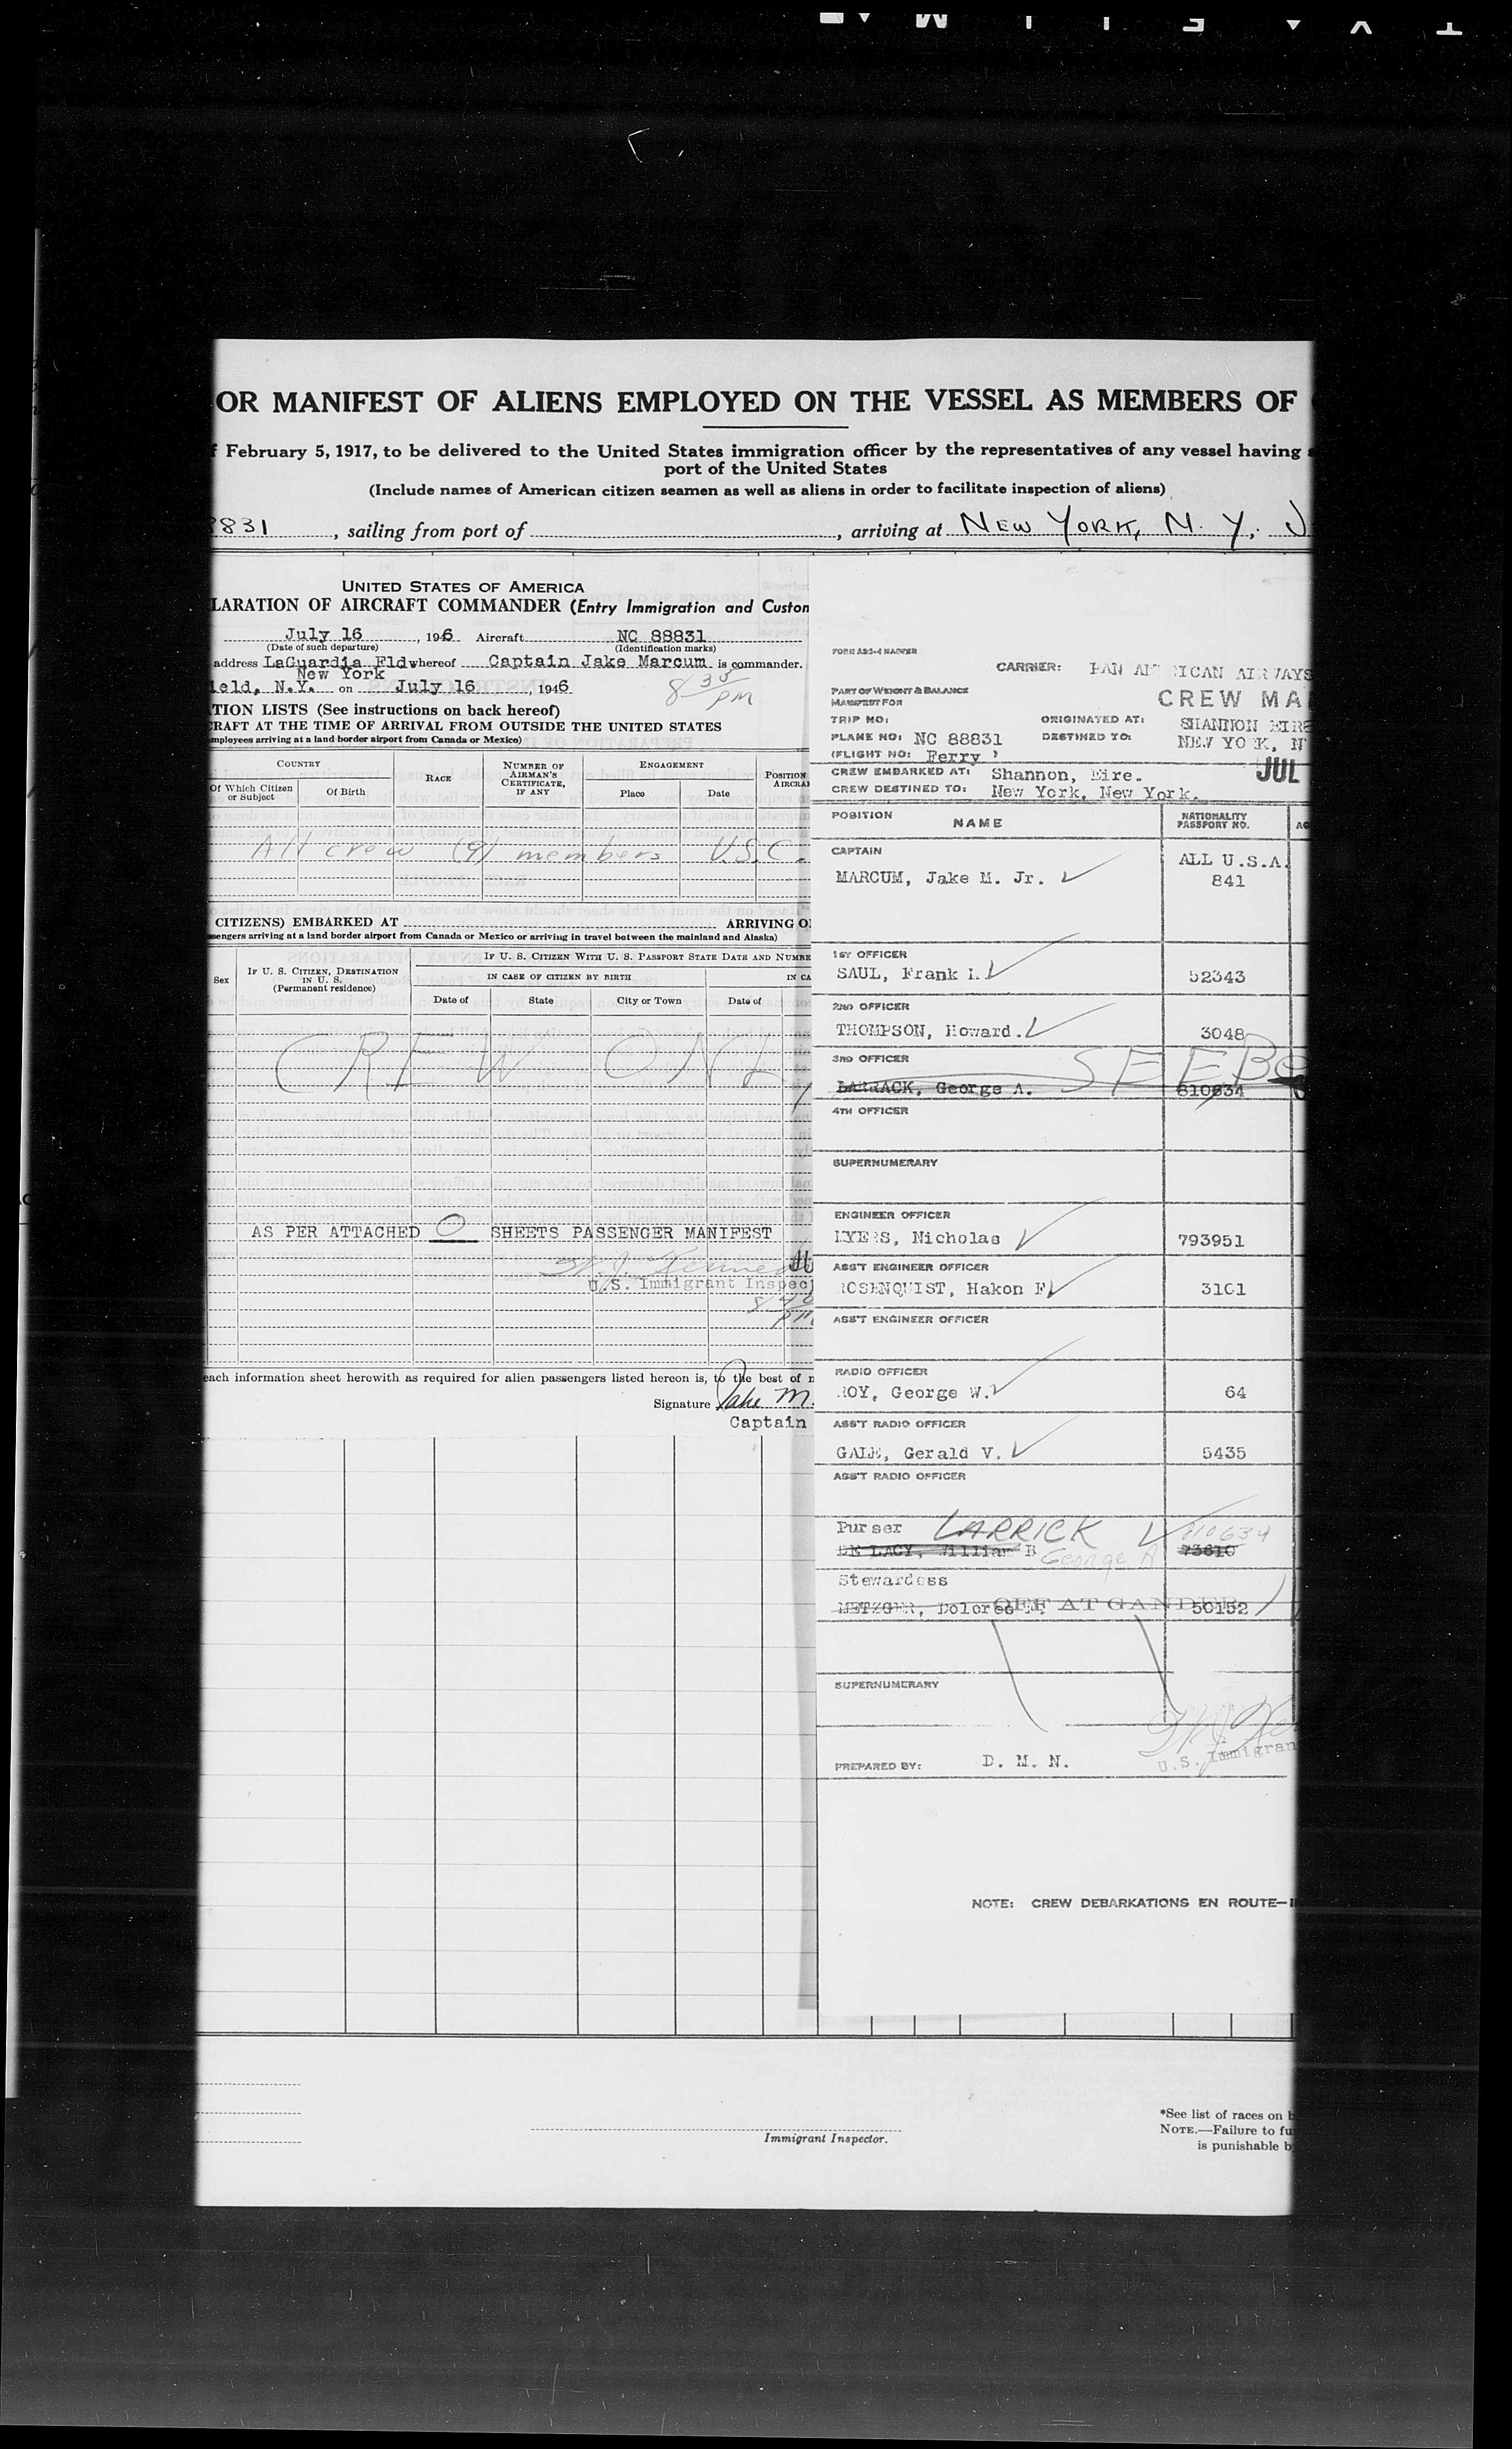 OR MANIFEST OF ALIENS EMPLOYED ON THE VESSEL AS MEMBERS OF
February 5, 1917, to be delivered to the United States immigration officer by the representatives of any vessel having
port of the United States
(Include names of American citizen seamen as well as aliens in order to facilitate inspection of aliens)
8831, sailing from port of, arriving at NEW YORK, N. Y., J
UNITED STATES OF AMERICA
LARATION OF AIRCRAFT COMMANDER (Entry Immigration and Custom
July 16, 1946 Aircraft NC 88831
(Date of such departure) (Identification marks)
address LaGuardia Fld whereof Captain Jake Marcum is commander.
New York
ield, N.Y. on July 16, 1946
8 35 PM
TION LISTS (See instructions on back hereof)
CRAFT AT THE TIME OF ARRIVAL FROM OUTSIDE THE UNITED STATES
mployees arriving at a land border airport from Canada or Mexico)
COUNTRY
RACE
NUMBER OF AIRMAN'S CERTIFICATE, IF ANY
ENGAGEMENT
POSITION
AIRCRA
Of Which Citizen or Subject
Of Birth
Place
Date
All crew (9) members U.S.C.
CITIZENS) EMBARKED AT ARRIVING O
sengers arriving at a land border airport from Canada or Mexico or arriving in travel between the mainland and Alaska)
Sex
IF U. S. CITIZEN, DESTINATION IN U. S.
(Permanent residence)
IF U. S. CITIZEN WITH U. S. PASSPORT STATE DATE AND NUMBE
IN CASE OF CITIZEN BY BIRTH
IN CA
Date of
State
City or Town
Date of
CREW ONL
AS PER ATTACHED 0 SHEETS PASSENGER MANIFEST
U.S. Immigrant Inspec
each information sheet herewith as required for alien passengers listed hereon is, to the best of
Signature Jake M.
Captain
FORM A23-4 MASTER
CARRIER: PAN AMERICAN AIRWAYS
PART OF WEIGHT & BALANCE
MANIFEST FOR
CREW MA
TRIP NO:
ORIGINATED AT: SHANNON EIRE
PLANE NO: NC 88831
DESTINED TO: NEW YORK, N
(FLIGHT NO: Ferry )
JUL
CREW EMBARKED AT: Shannon, Eire.
CREW DESTINED TO: New York, New York.
POSITION
NAME
NATIONALITY
PASSPORT NO.
AG
CAPTAIN
ALL U.S.A.
MARCUM, Jake M. Jr. 841
1ST OFFICER
SAUL, Frank I. 52343
2ND OFFICER
THOMPSON, Howard. 3048
3RD OFFICER
SEE BE
LARRACK, George A. 810634
4TH OFFICER
SUPERNUMERARY
ENGINEER OFFICER
MYERS, Nicholas 793951
ASS'T ENGINEER OFFICER
ROSENQUIST, Hakon F 3101
ASS'T ENGINEER OFFICER
RADIO OFFICER
ROY, George W. 64
ASS'T RADIO OFFICER
GALE, Gerald V. 5435
ASS'T RADIO OFFICER
Purser LARRICK 810634
DE LACY, William B George A 73610
Stewardess
METZGER, Dolores OFF AT GANDER 50152
SUPERNUMERARY
U.S. Immigran
PREPARED BY: D. M. N.
NOTE: CREW DEBARKATIONS EN ROUTE—
Immigrant Inspector.
*See list of races on b
NOTE.—Failure to fu
is punishable b